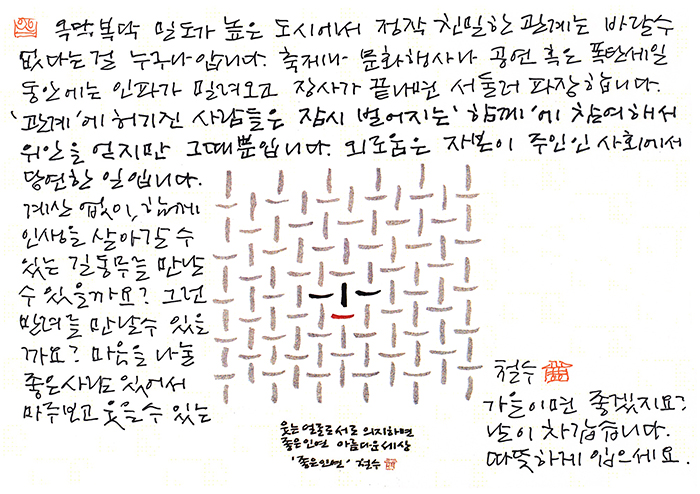 복닥복닥 밀도가 높은 도시에서 정작 친밀한 관계는 바랄수
없다는걸 누구나 압니다. 축제나 문화행사나 공연 혹은 폭탄세일
동안에는 인파가 밀려오고 장사가 끝나면 서둘러 파장합니다.
'관계'에 허기진 사람들은 잠시 벌어지는 '함께'에 참여해서
위안을 얻지만 그때뿐입니다. 외로움은 자본이 주인인 사회에서
당연한 일입니다.
계산 없이, 함께
인생을 살아갈 수
있는 길동무를 만날
수 있을까요? 그런
반려를 만날수 있을
까요? 마음을 나눌
좋은사람도 있어서
마주보고 웃을 수 있는
웃는 얼굴로 서로 의지하면
좋은인연 아름다운 세상
'좋은인연' 철수
철수
가을이면 좋겠지요?
날이 차갑습니다.
따뜻하게 입으세요.